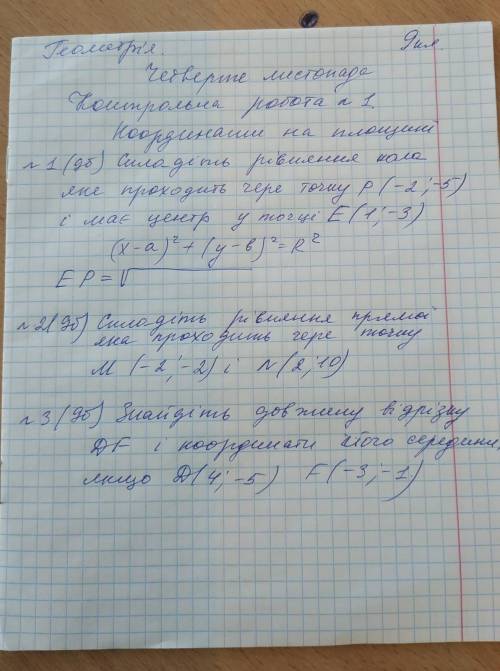 Геометрія. 9 кл.
Четверте листопада
Контрольна робота №1.
Координати на площині
№1 (3б) Складіть рівняння кола
яке проходить чере точку P(-2;-5)
і має центр у точці E(1;-3)
(x-a)²+(y-b)²=R²
EP=√
№2(3б) Складіть рівняння прямої
яка проходить чере точку
M (-2;-2) і N(2;10)
№3(3б) Знайдіть довжину відрізку
DF і координати його середини,
якщо D(4;-5) F(-3;-1)